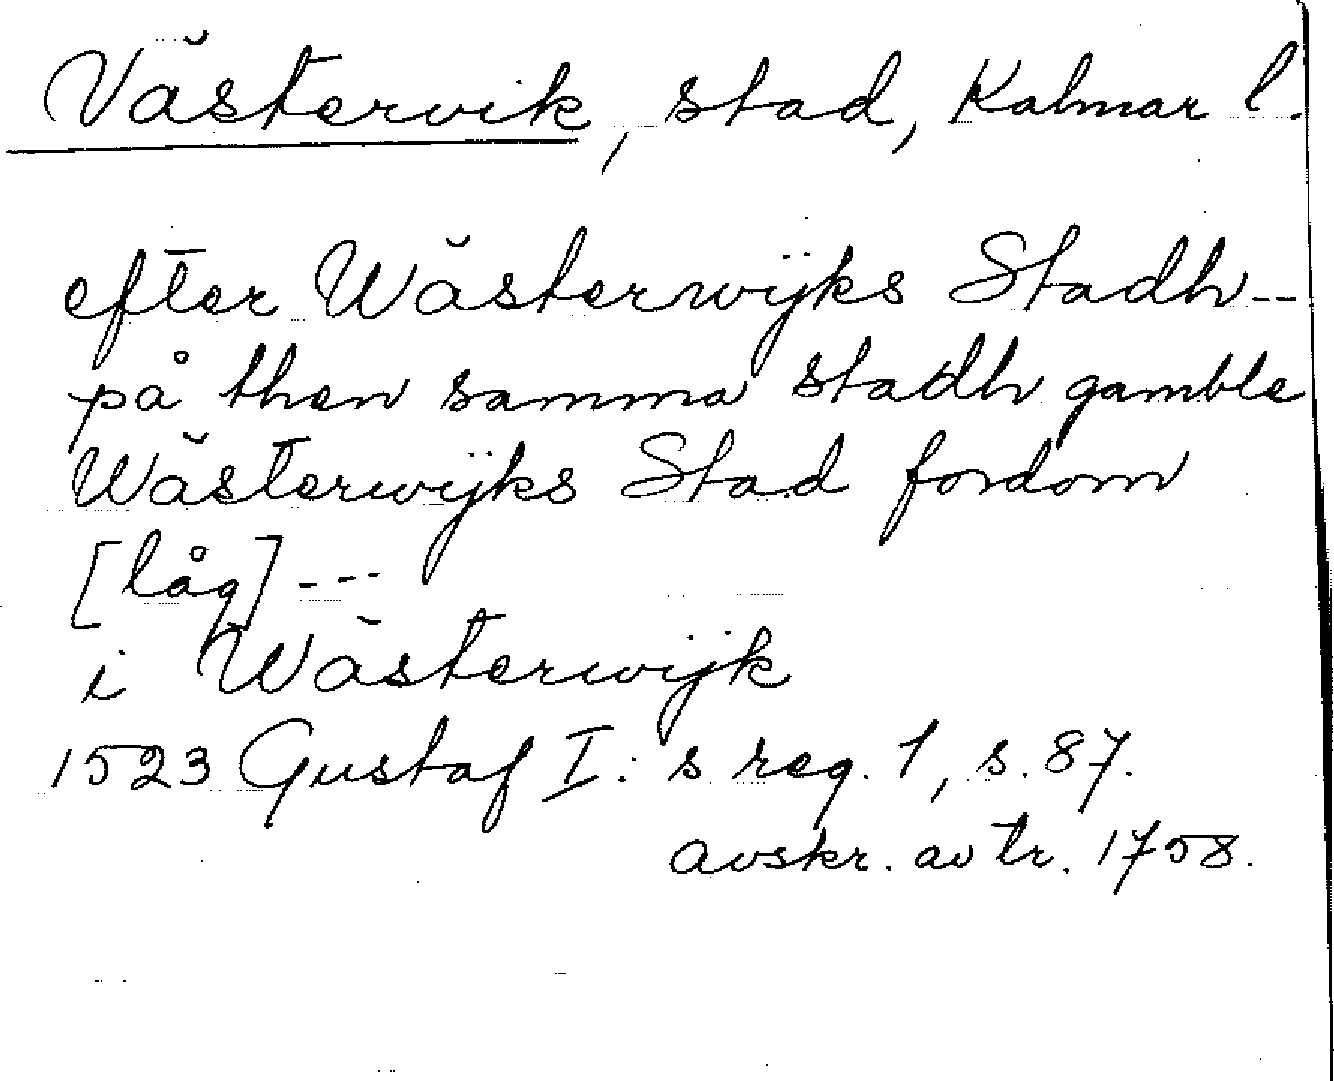 Västervik, stad, Kalmar l.
efter Wästerwijks Stadh --
på then samma stadh gamble
Wästerwijks Stad fordom
[låg] ---
i Wästerwijk
1523 Gustaf I:s reg. 1, s. 87.
avskr. av tr. 1758.